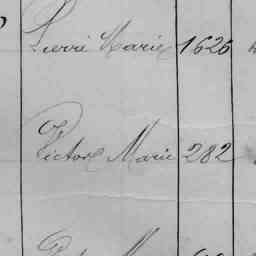 Pierre Marie 1626
Victor Marie 282